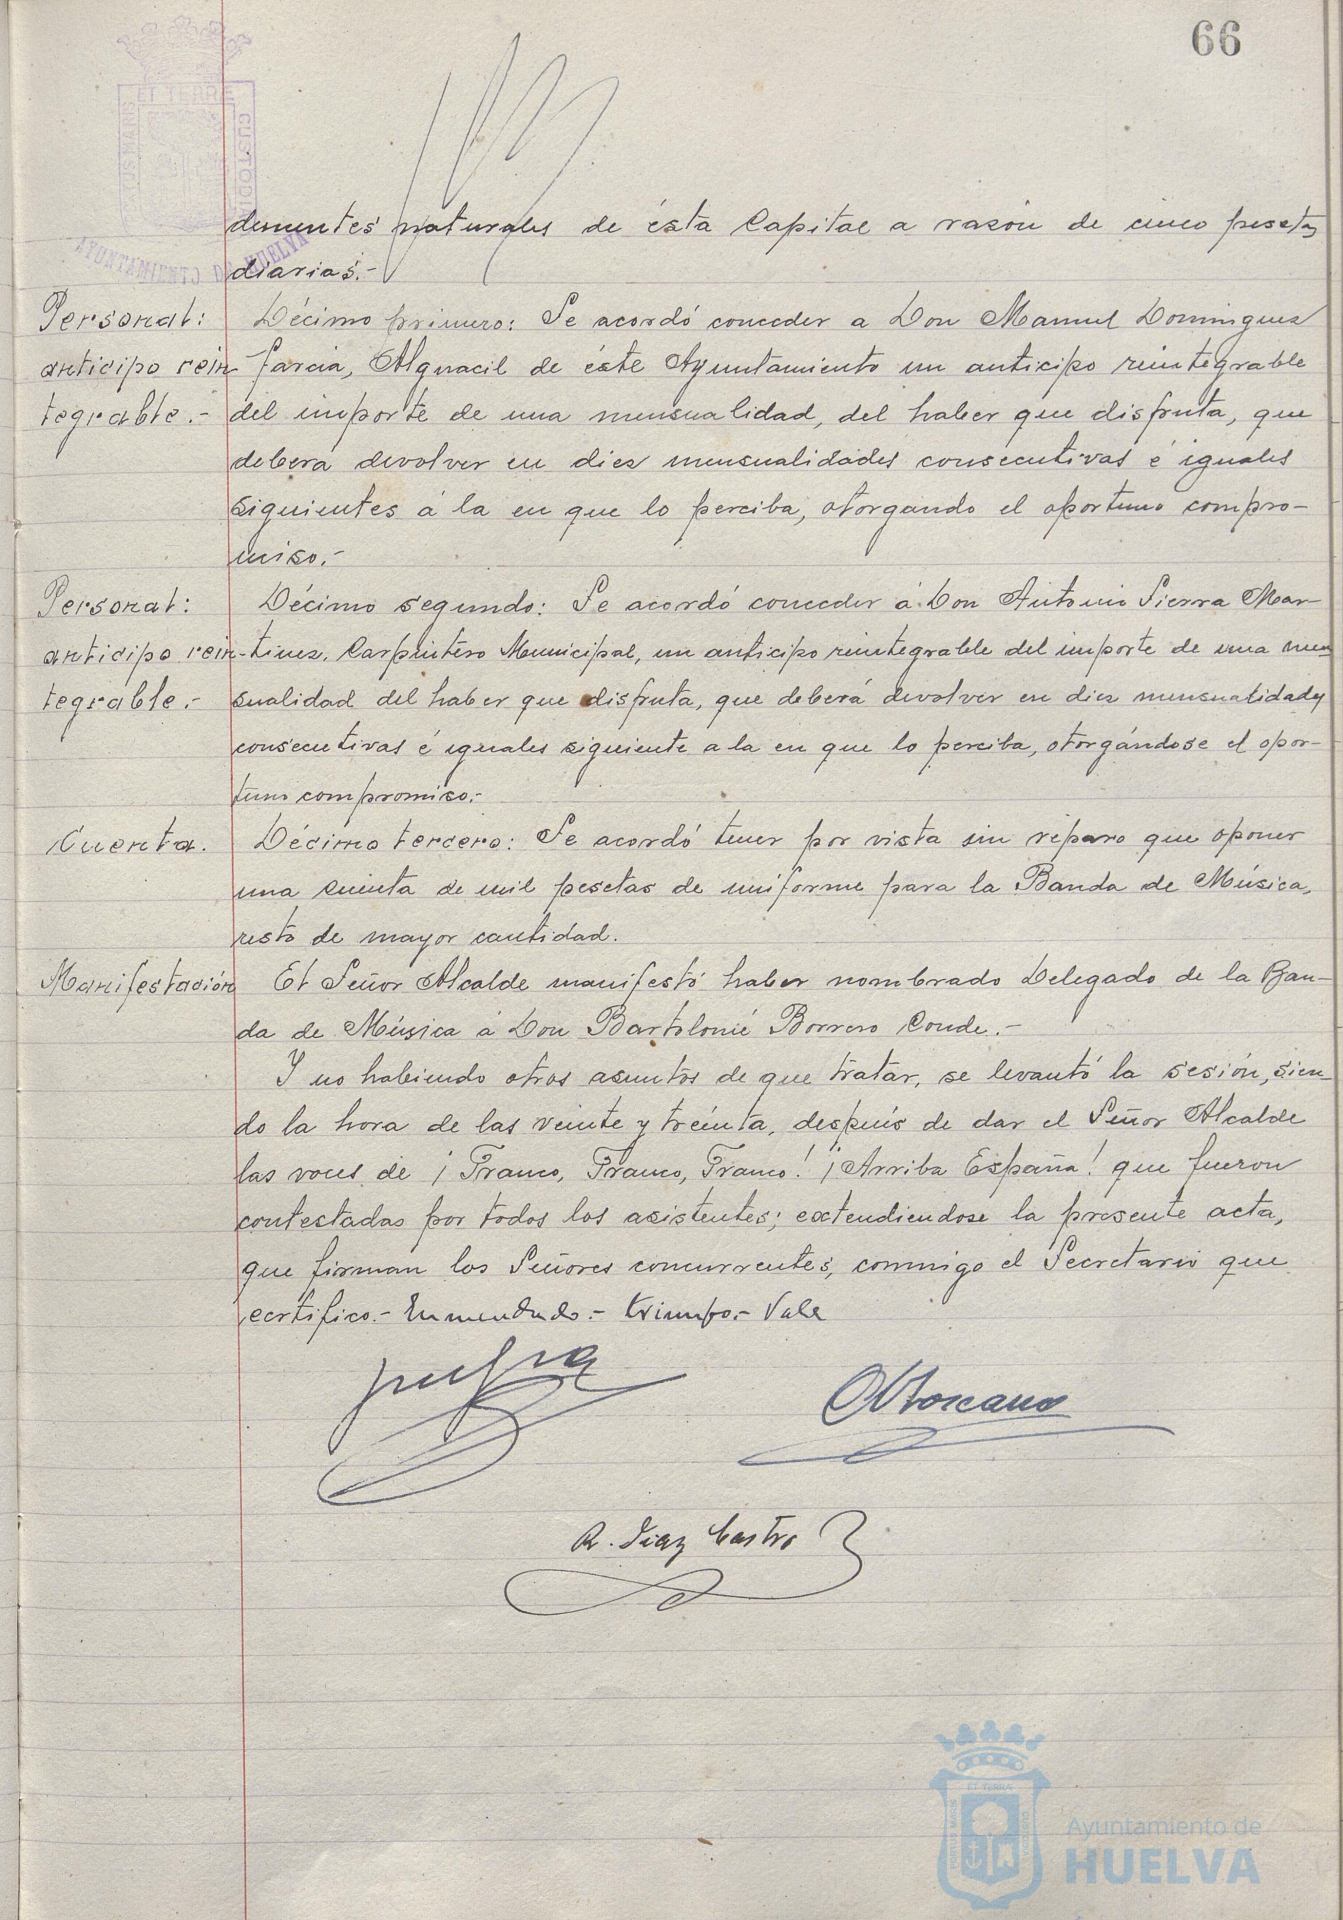 66
ET TERRE
CUSTODIA
AYUNTAMIENTO DE HUELVA
dementes naturales de ésta Capital a razón de cinco pesetas
diarias.-
Personal: Décimo primero: Se acordó conceder a Don Manuel Dominguez
anticipo rein- Garcia, Alguacil de éste Ayuntamiento un anticipo reintegrable
tegrable.- del importe de una mensualidad, del haber que disfruta, que
deberá devolver en diez mensualidades consecutivas é iguales
siguientes á la en que lo perciba, otorgando el oportuno compro-
miso.-
Personal: Décimo segundo: Se acordó conceder á Don Antonio Sierra Mar-
anticipo rein- tinez, Carpintero Municipal, un anticipo reintegrable del importe de una men-
tegrable.- sualidad del haber que disfruta, que deberá devolver en diez mensualidades
consecutivas é iguales siguiente a la en que lo perciba, otorgándose el opor-
tuno compromiso.-
Cuenta. Décimo tercero: Se acordó tener por vista sin réparo que oponer
una cuenta de mil pesetas de uniforme para la Banda de Música,
resto de mayor cantidad.
Manifestación El Señor Alcalde manifestó haber nombrado Delegado de la Ban-
da de Música á Don Bartolomé Borrero Conde.-
Y no habiendo otros asuntos de que tratar, se levantó la sesión, sien-
do la hora de las veinte y treinta, después de dar el Señor Alcalde
las voces de ¡Franco, Franco, Franco! ¡Arriba España! que fueron
contestadas por todos los asistentes; extendiendose la presente acta,
que firman los Señores concurrentes, conmigo el Secretario que
certifico.- Enmendado.- triunfo.- Vale
Toscano
R. Diaz Castro
ET TERRÆ
PORTUS MARIS
CUSTODIA
Ayuntamiento de
HUELVA